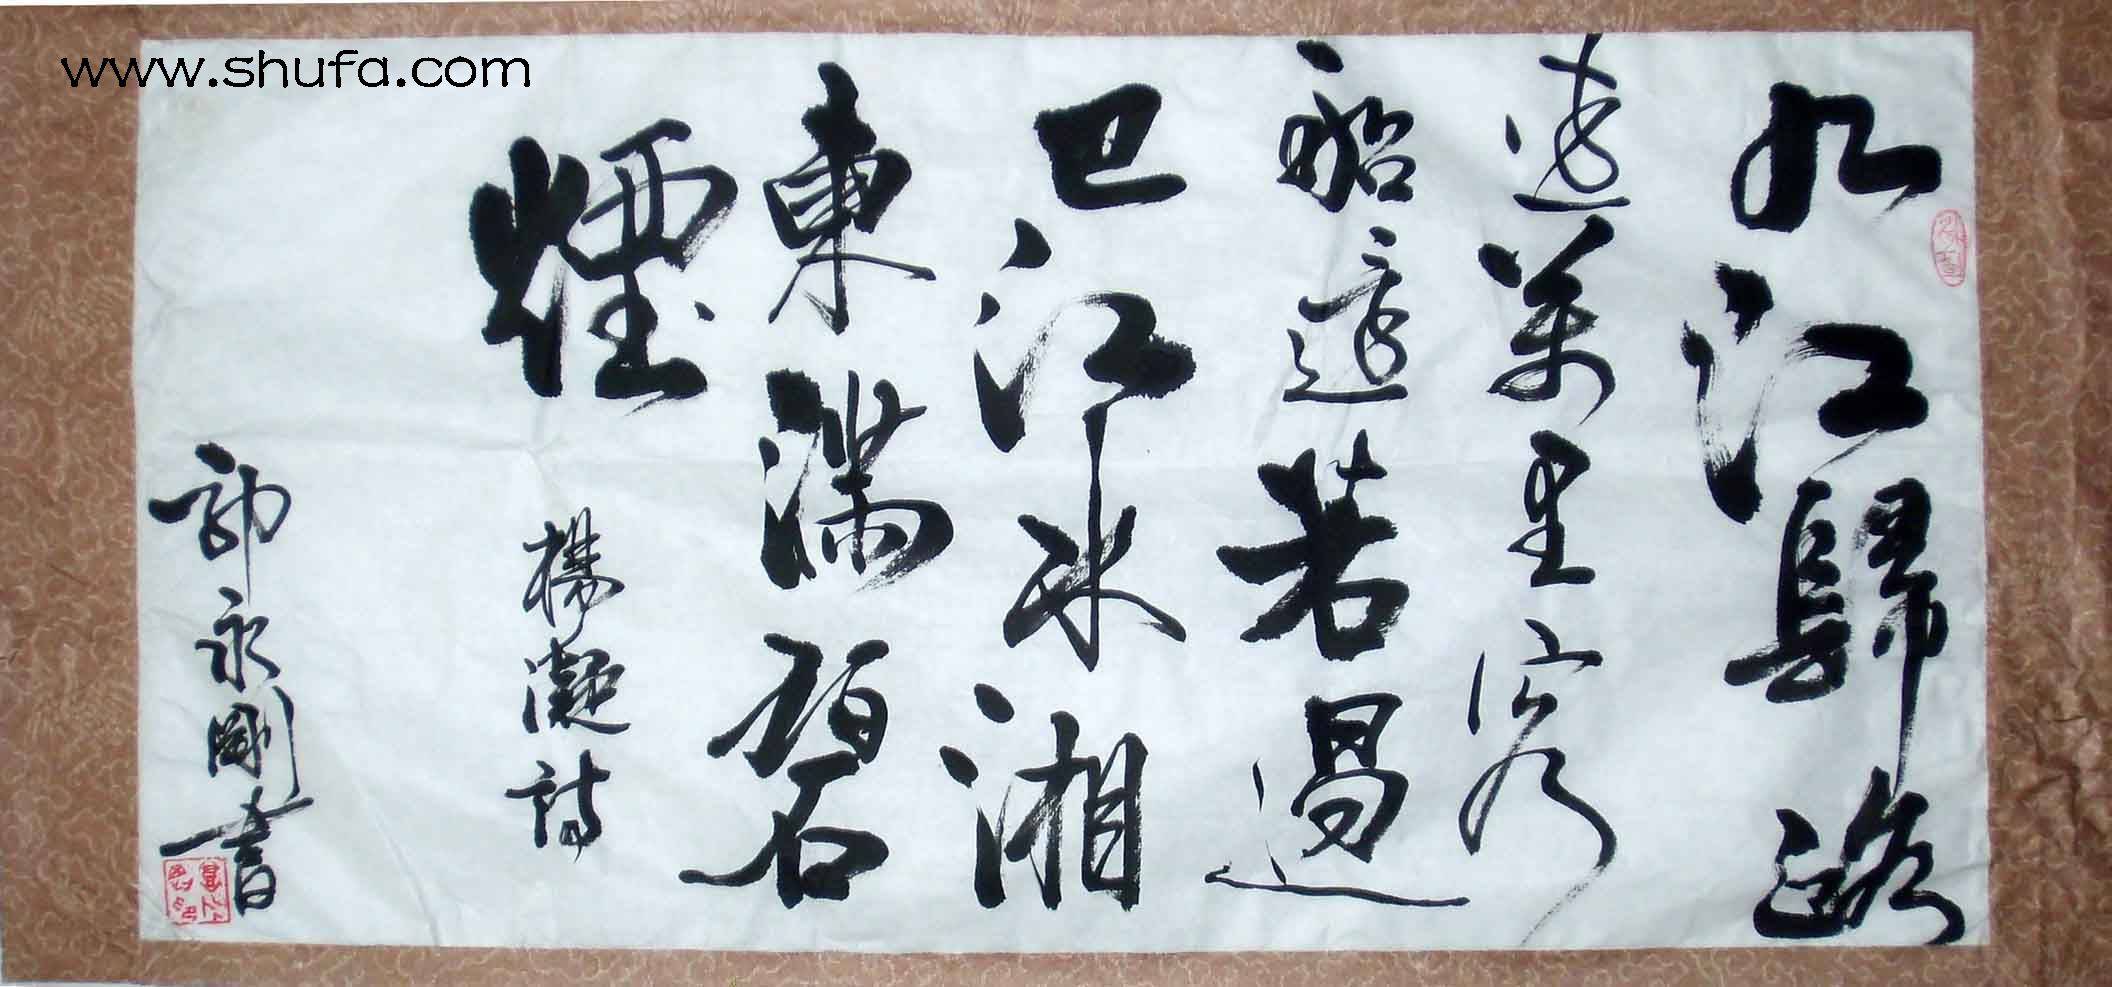 www.shufa.com
九江歸路
遠萬里客
船還若過
巴江水湘
東滿碧
煙
楊凝詩
郭永剛書